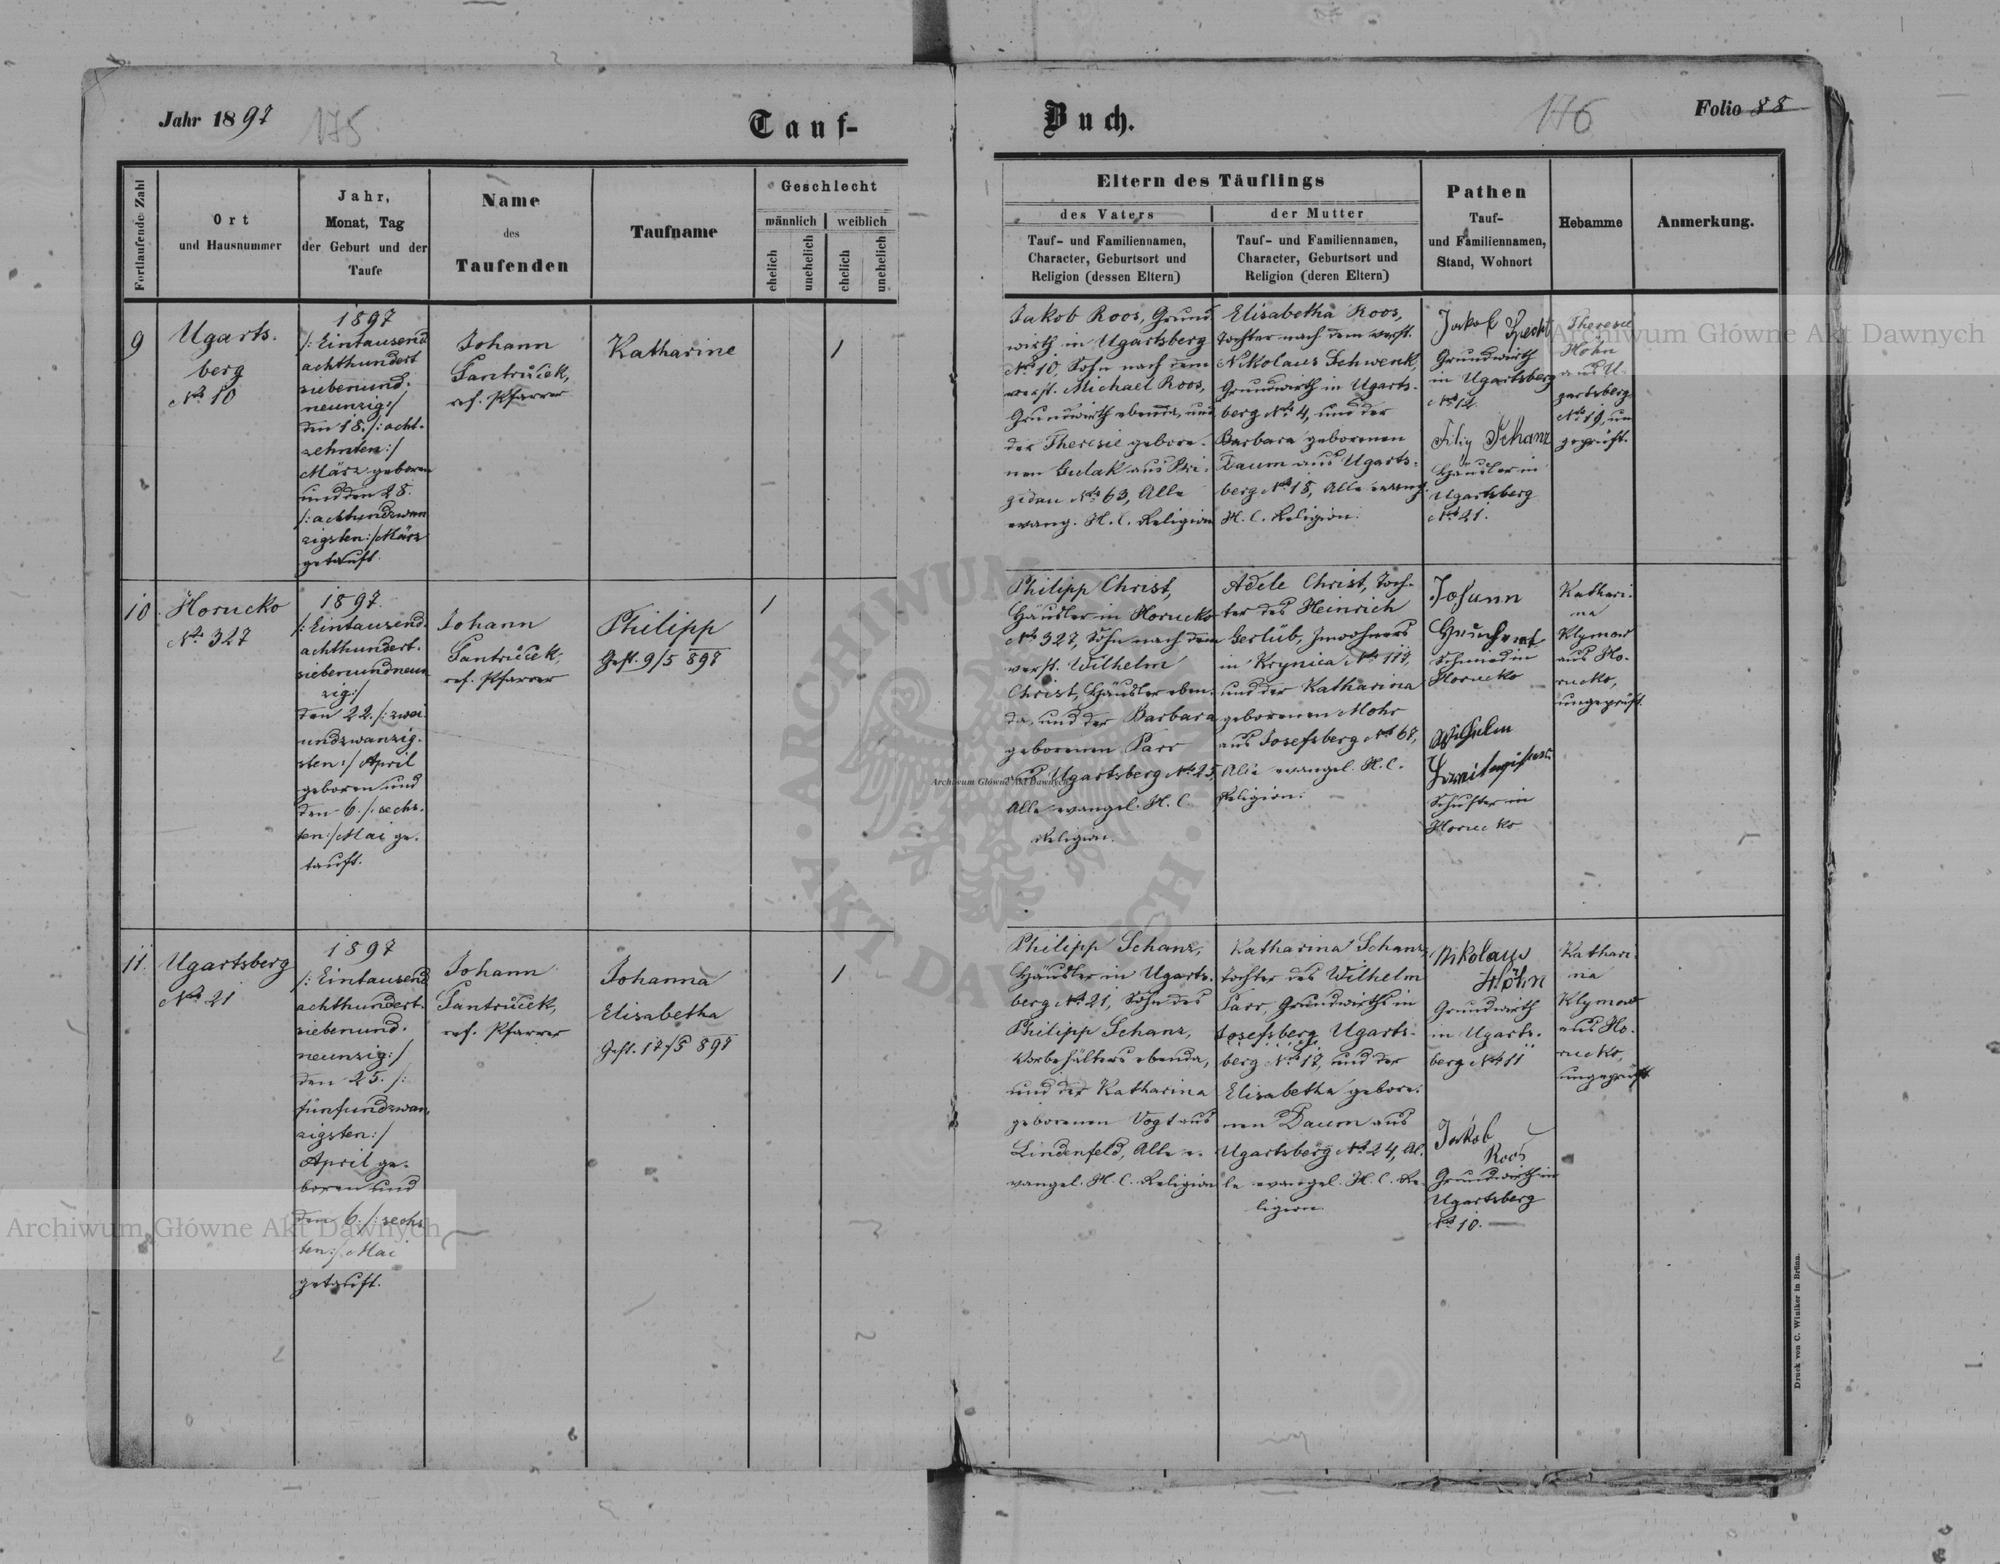 Jahr 1897
175
Tauf-
Buch.
176
Folio 88
Fortlaufende Zahl
Ort
und Hausnummer
Jahr,
Monat, Tag
der Geburt und der
Taufe
Name
des
Taufenden
Taufname
Geschlecht
männlich
weiblich
ehelich
unehelich
ehelich
unehelich
Eltern des Täuflings
des Vaters
der Mutter
Tauf- und Familiennamen,
Character, Geburtsort und
Religion (dessen Eltern)
Tauf- und Familiennamen,
Character, Geburtsort und
Religion (deren Eltern)
Pathen
Tauf-
und Familiennamen,
Stand, Wohnort
Hebamme
Anmerkung.
9
Ugarts-
berg
No 10
1897
/: Eintausend
achthundert
siebenund-
neunzig :/
den 18. /: acht-
zehnten :/
März geboren
und den 28.
/: achtundzwan
zigsten :/ März
getauft.
Johann
ref. Pfarrer
Katharine
1
Jakob Roos, Grund
wirth in Ugartsberg
No 10, Sohn nach dem
verst. Michael Roos,
Grundwirth ebenda, und
der Theresie gebore-
nen Gulak aus Bri-
gidau No 63, Alle
evang. H. C. Religion
Elisabetha Roos,
Tochter nach dem verst.
Nikolaus Schwenk,
Grundwirth in Ugarts-
berg No 4, und der
Barbara geborenen
Daum aus Ugarts-
berg No 18, Alle evang.
H. C. Religion.
Jakob
Grundwirth
in Ugartsberg
No 12.
Filip Schanz
Häusler in
Ugartsberg
No 21.
Theresie
Höhn
aus U-
gartsberg
No 19, un
geprüft.
10
Horucko
No 327
1897.
/: Eintausend-
achthundert-
siebenundneun
zig :/
den 22. /: zwei
undzwanzig-
sten :/ April
geboren und
den 6. /: sechs-
ten :/ Mai ge-
tauft.
Johann
ref. Pfarrer
Philipp
Gest. 9/5 897
1
Philipp Christ,
Häusler in Horucko
No 327, Sohn nach dem
verst. Wilhelm
Christ, Häusler eben-
da, und der Barbara
geborenen Parr
aus Ugartsberg No 25,
Alle evangel. H. C.
Religion.
Adele Christ, Toch-
ter des Heinrich
Gerlüb, Inwohners
in Krynica No 117,
und der Katharina
geborenen Mohr
aus Josefsberg No 68,
Alle evangel. H. C.
Religion.
Johann
Schmied in
Horucko
Wilhelm
Schuster in
Horucko
Kathari-
na
Klymow
aus Ho-
rucko,
ungeprüft.
11.
Ugartsberg
No 21
1897
/: Eintausend
achthundert-
siebenund-
neunzig :/
den 25. /:
fünfundzwan-
zigsten :/
April ge-
boren und
den 6. /: sechs
ten :/ Mai
getauft.
Johann
ref. Pfarrer
Johanna
Elisabetha
Gest. 17/5 897
1
Philipp Schanz,
Häusler in Ugarts-
berg No 21, Sohn des
Philipp Schanz,
Vorbehälters ebenda,
und der Katharina
geborenen Vogt aus
Lindenfeld, Alle e-
vangel. H. C. Religion
Katharina Schanz,
Tochter des Wilhelm
Parr, Grundwirths in
Josefsberg Ugarts-
berg No 17, und der
Elisabetha gebore-
nen Daum aus
Ugartsberg No 24, Al-
le evangel. H. C. Re-
ligion.
Nikolaus
Höhn
Grundwirth
in Ugarts-
berg No 11
Jakob
Roos
Grundwirth in
Ugartsberg
No 10.
Kathari-
na
Klymow
aus Ho-
rucko,
ungeprüft
Druck von C. Winiker in Brünn.
Archiwum Główne Akt Dawnych
Archiwum Główne Akt Dawnych
Archiwum Główne Akt Dawnych
ARCHIWUM GŁÓWNE AKT DAWNYCH